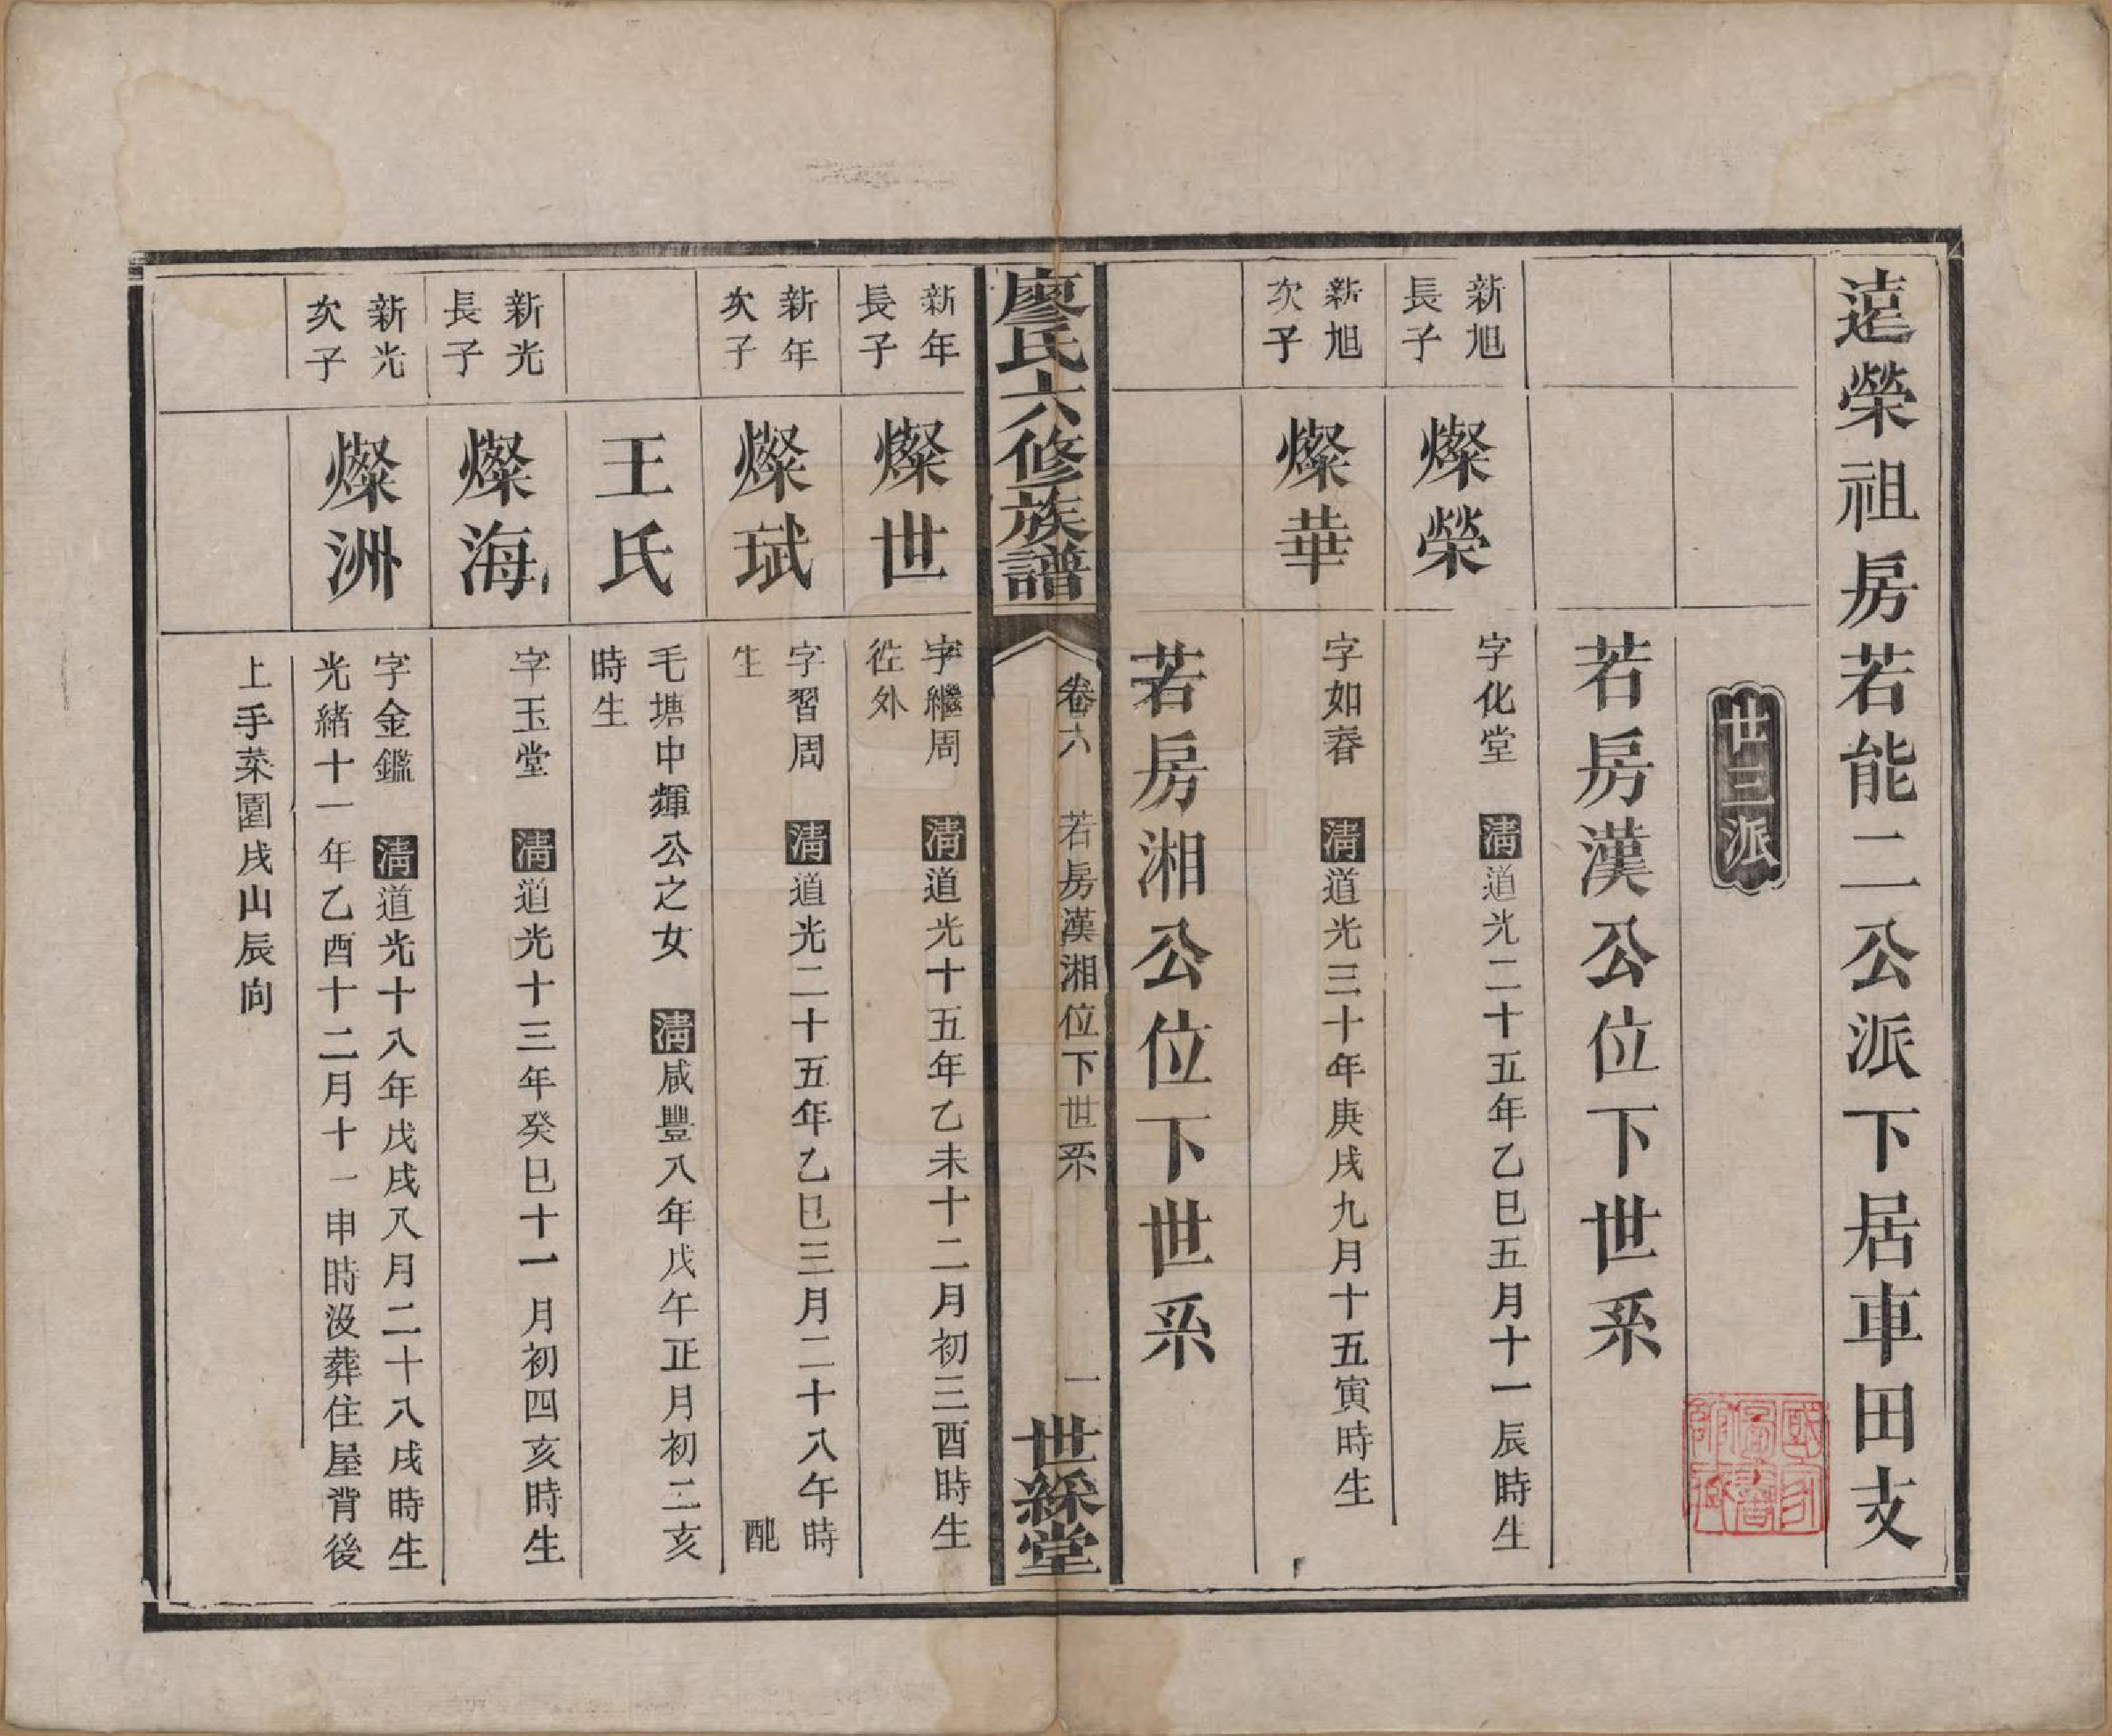 遠榮祖房若能二公派下居車田支
廿三派
若房漢公位下世系
新旭長子
燦榮
字化堂 清道光二十五年乙巳五月十一辰時生
新旭次子
燦華
字如春 清道光三十年庚戌九月十五寅時生
若房湘公位下世系
廖氏六修族譜
卷六 若房漢湘位下世系 一
世綵堂
新年長子
燦世
字繼周 清道光十五年乙未十二月初三酉時生
徃外
新年次子
燦珷
字習周 清道光二十五年乙巳三月二十八午時
生 配
王氏
毛塘中輝公之女 清咸豐八年戊午正月初二亥
時生
新光長子
燦海
字玉堂 清道光十三年癸巳十一月初四亥時生
新光次子
燦洲
字金鑑 清道光十八年戊戌八月二十八戌時生
光緒十一年乙酉十二月十一申時没葬住屋背後
上手菜園戌山辰向